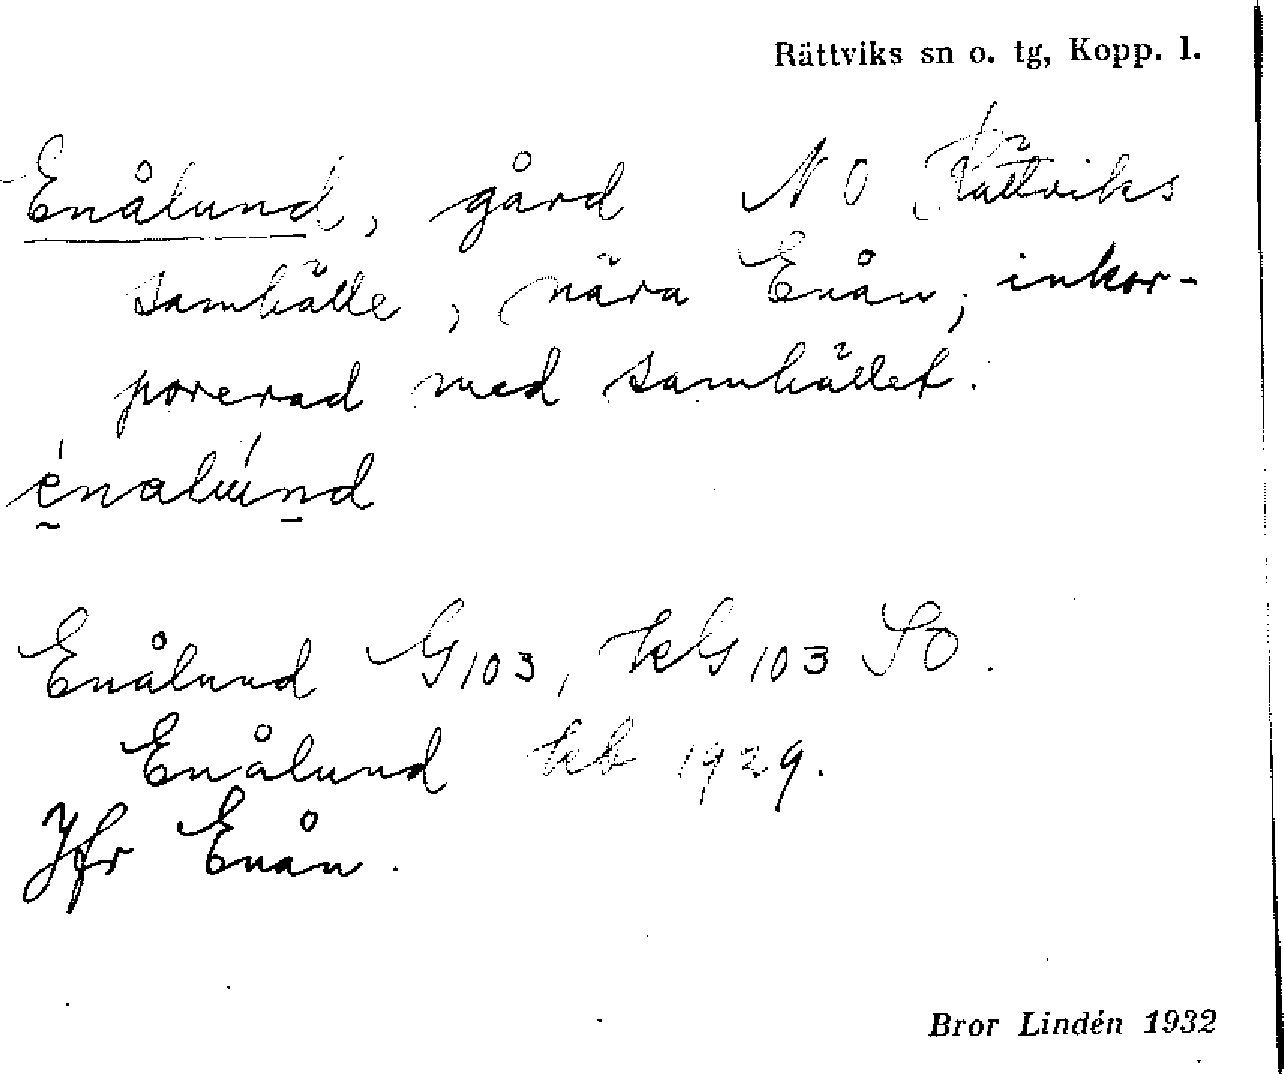 Rättviks sn o. tg, Kopp. l.
Enålund, gård NO Rättviks
samhälle, nära Enån, inkor-
porerad med samhället.
Enålund G103, kG103 SO.
Enålund kb 1929.
Jfr Enån.
Bror Lindén 1932